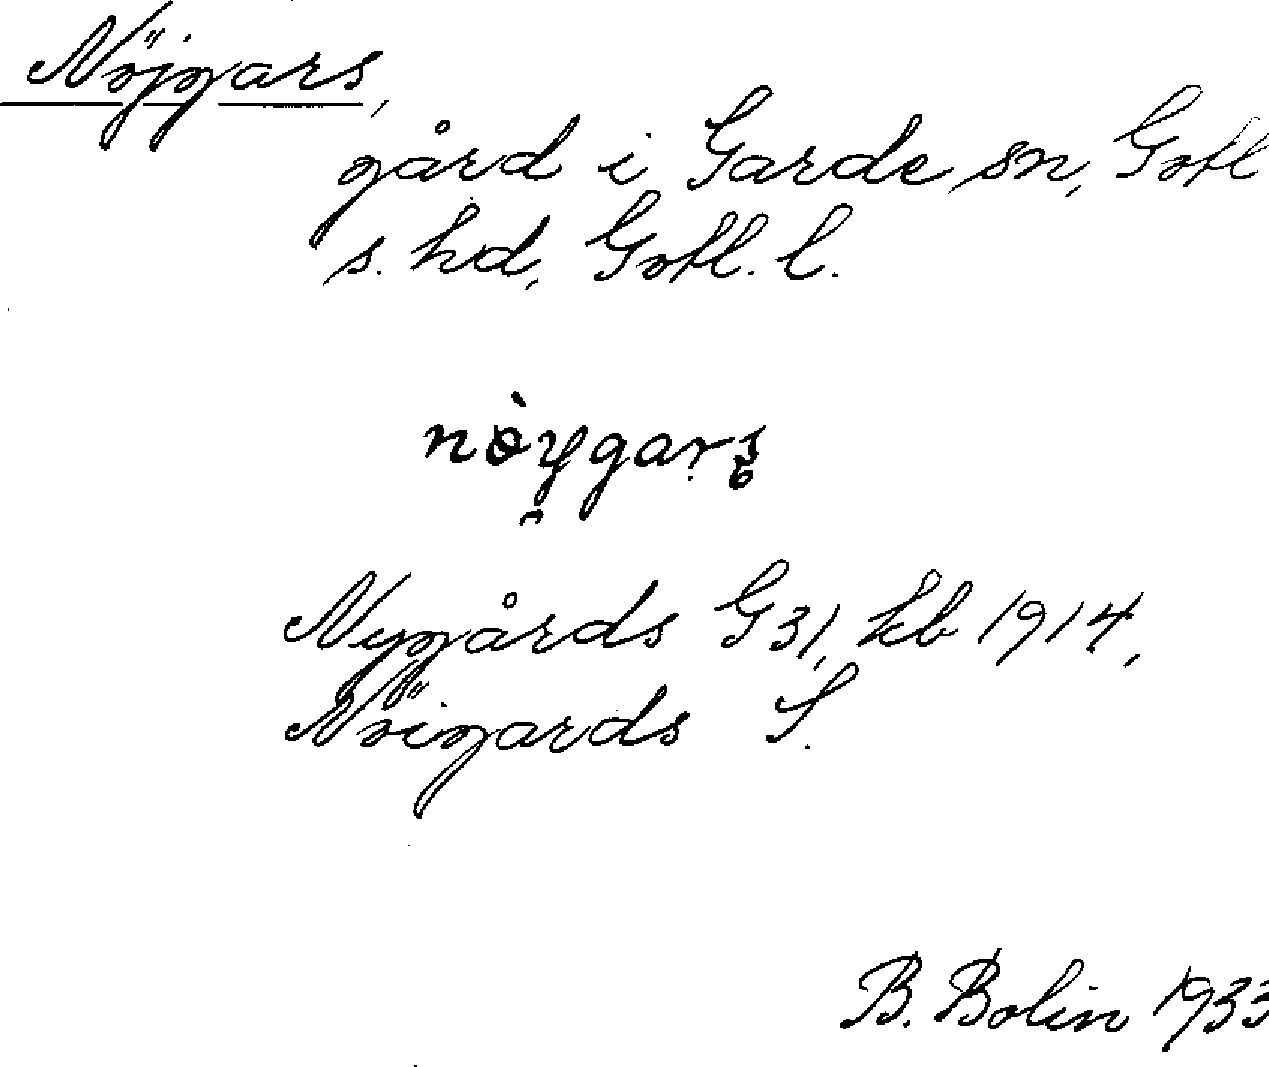 Nöjgars,
gård i Garde sn, Gotl
s. hd, Gotl. l.
nòygars
Nygårds G31, kb 1914,
Nöigards S.
B. Bolin 1933